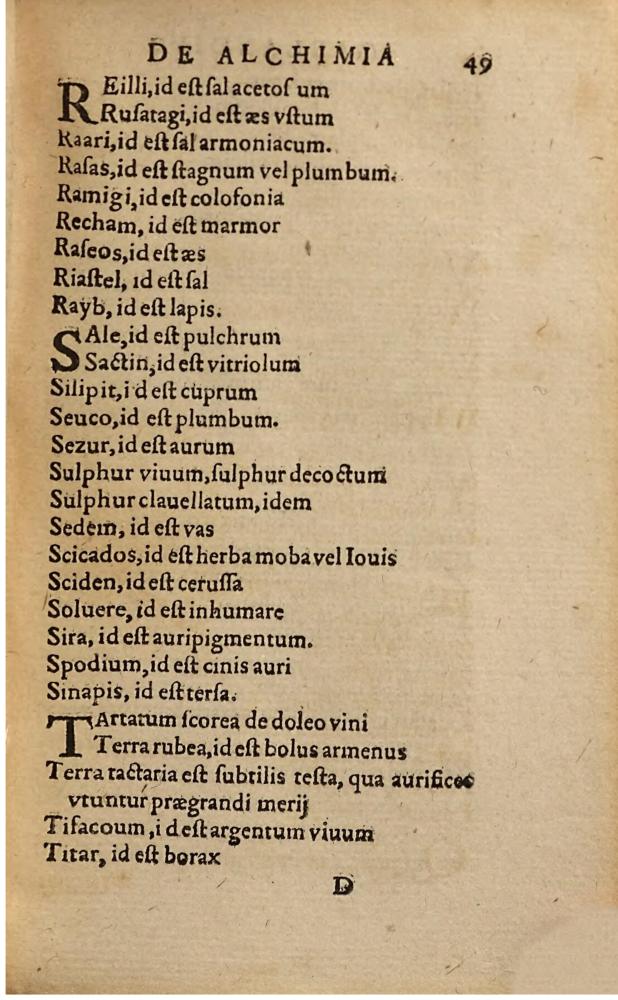 DE ALCHIMIA 49
REilli,id eſt ſal acetoſ um
Ruſatagi,id eſt æs vſtum
Kaari,id eſt ſal armoniacum.
Raſas,id eſt ſtagnum vel plumbum.
Ramigi,id eſt colofonia
Recham, id eſt marmor
Raſeos,id eſt æs
Riaſtel, id eſt ſal
Rayb, id eſt lapis.
SAle,id eſt pulchrum
Sactin,id eſt vitriolum
Silipit,i d eſt cuprum
Seuco,id eſt plumbum.
Sezur,id eſt aurum
Sulphur viuum,ſulphur decoctum
Sulphur clauellatum,idem
Sedem, id eſt vas
Scicados,id eſt herba moba vel Iouis
Sciden,id eſt ceruſſa
Soluere, id eſt inhumare
Sira, id eſt auripigmentum.
Spodium,id eſt cinis auri
Sinapis, id eſt terſa.
TArtatum ſcorea de doleo vini
Terra rubea,id eſt bolus armenus
Terra tactaria eſt ſubtilis teſta, qua aurifices
vtuntur prægrandi merij
Tifacoum,i d eſt argentum viuum
Titar, id eſt borax
D